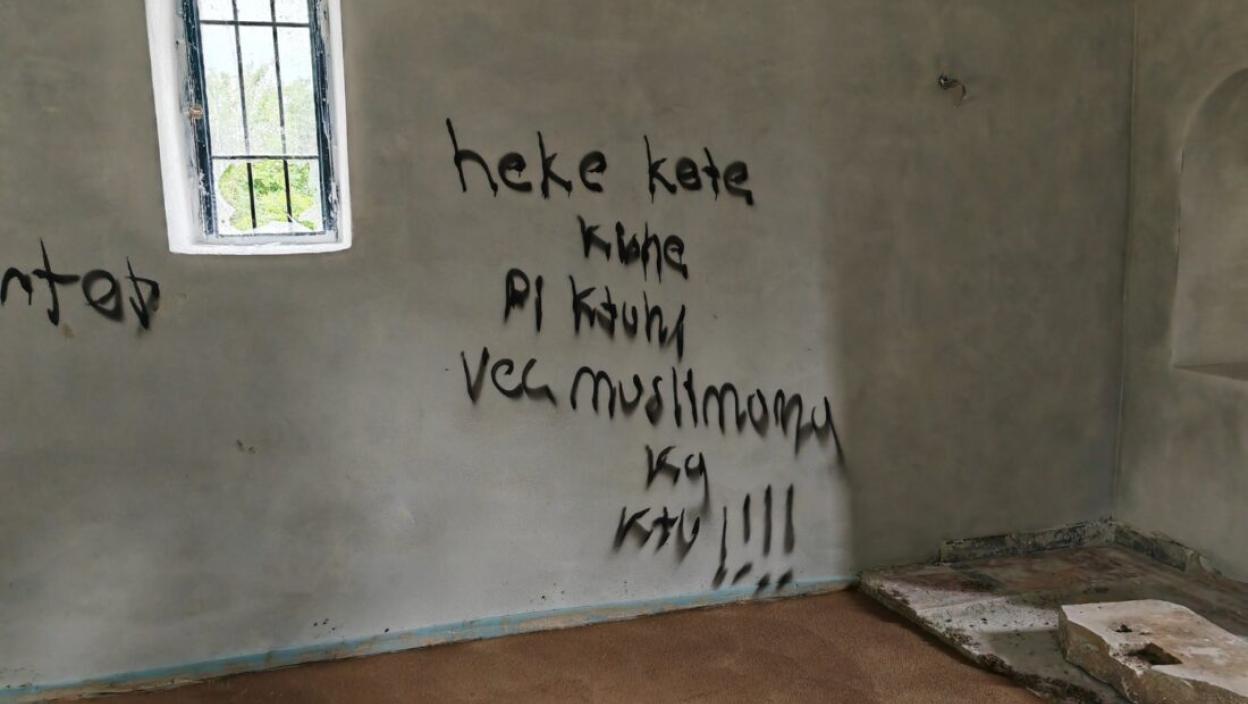 heke kete
kishe
PI ktuhi
vec muslimana
Ka
ktu !!!!